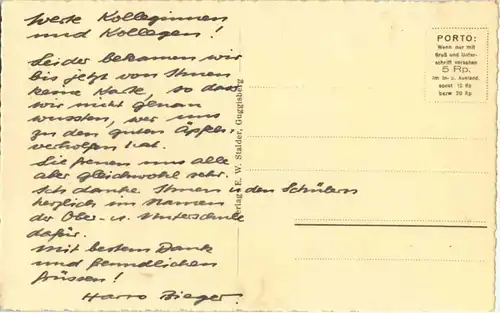 Werte Kolleginnen
und Kollegen!
Leider bekamen wir
bis jetzt von Ihnen
keine Karte, so dass
wir nicht genau
wussten, wer uns
zu den guten Äpfeln
verholfen hat.
Sie freuen uns alle
aber gleichwohl sehr.
Ich danke Ihnen u. den Schülern
herzlich im Namen
der Ober- u. Unterschule
dafür.
Mit bestem Dank
und freundlichen
Grüssen!
Harro Bieger.
Verlag E. W. Stalder, Guggisberg
PORTO:
Wenn nur mit
Gruß und Unter-
schrift versehen
5 Rp.
im In- u. Ausland.
sonst 10 Rp
bezw 20 Rp